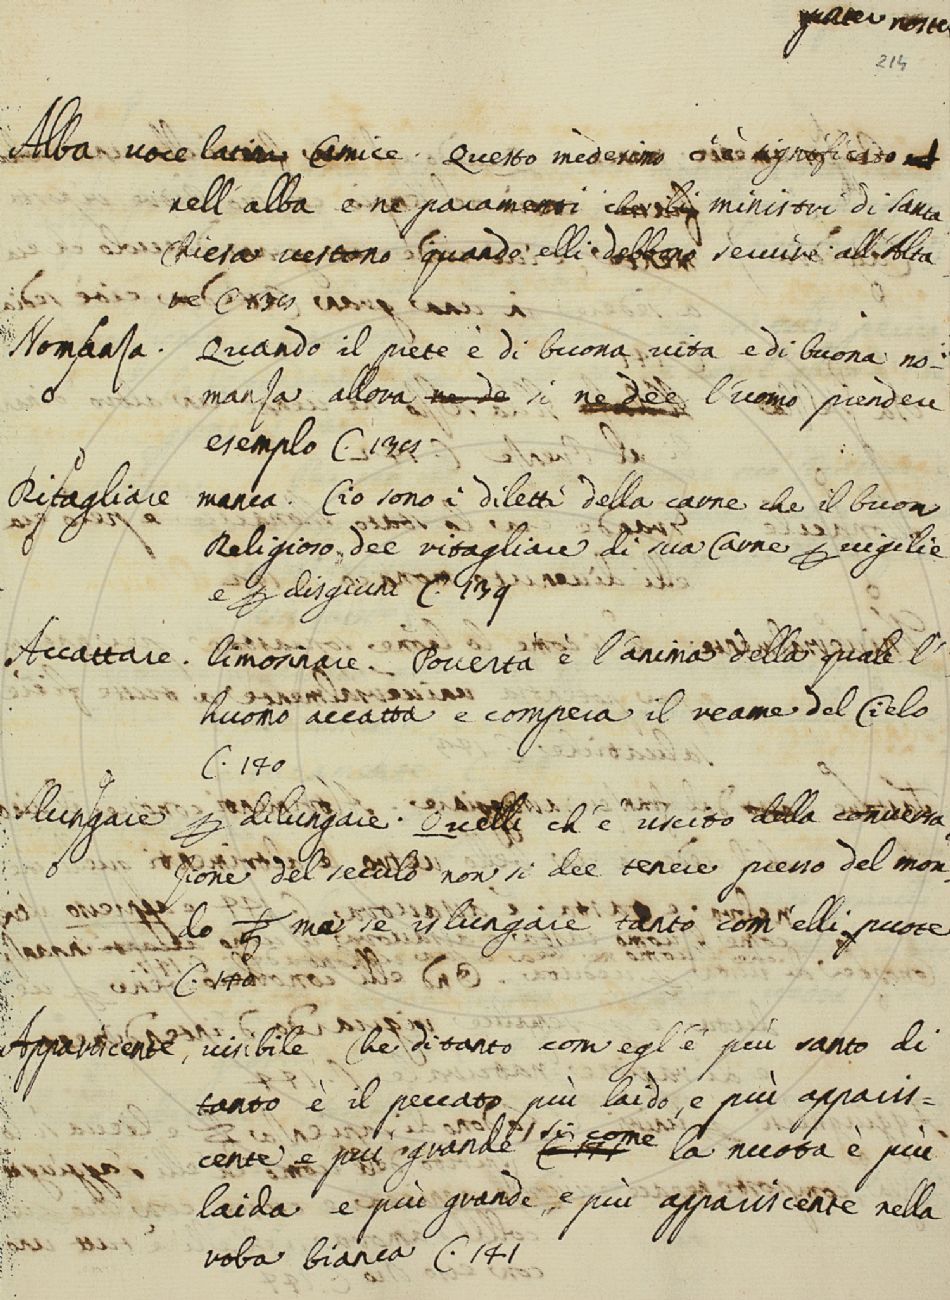 pater noster
214
Alba voce latina Camice. Questo medesimo è significato
nell alba e ne paramenti che li ministri di santa
Chiesa vestono quando elli debbono servire all'Alta
re C. 139
Nomanza. Quando il prete è di buona vita e di buona no-
manza allora ne de si ne dee l'uomo prendere
esemplo C. 139
Ritagliare manca. Cio sono i diletti della carne che il buon
Religioso dee ritagliare di sua Carne ꝑ vigilie
e ꝑ disgiuni C. 139
Accattare. limosinare. Poverta e l'anima della quale l'
huomo accatta e compera il reame del Cielo
C. 140
Slungare ꝑ dilungare. Quelli ch'è uscito della conversa
zione del seculo non si dee tenere presso del mon-
do ma se islungare tanto com'elli puote
C. 140
Appariscente, visibile Che di tanto com egl'è più santo di
tanto è il peccato più laido, e più apparis-
cente e più grande si come la nuota è più
laida e più grande, e più appariscente nella
roba bianca C. 141